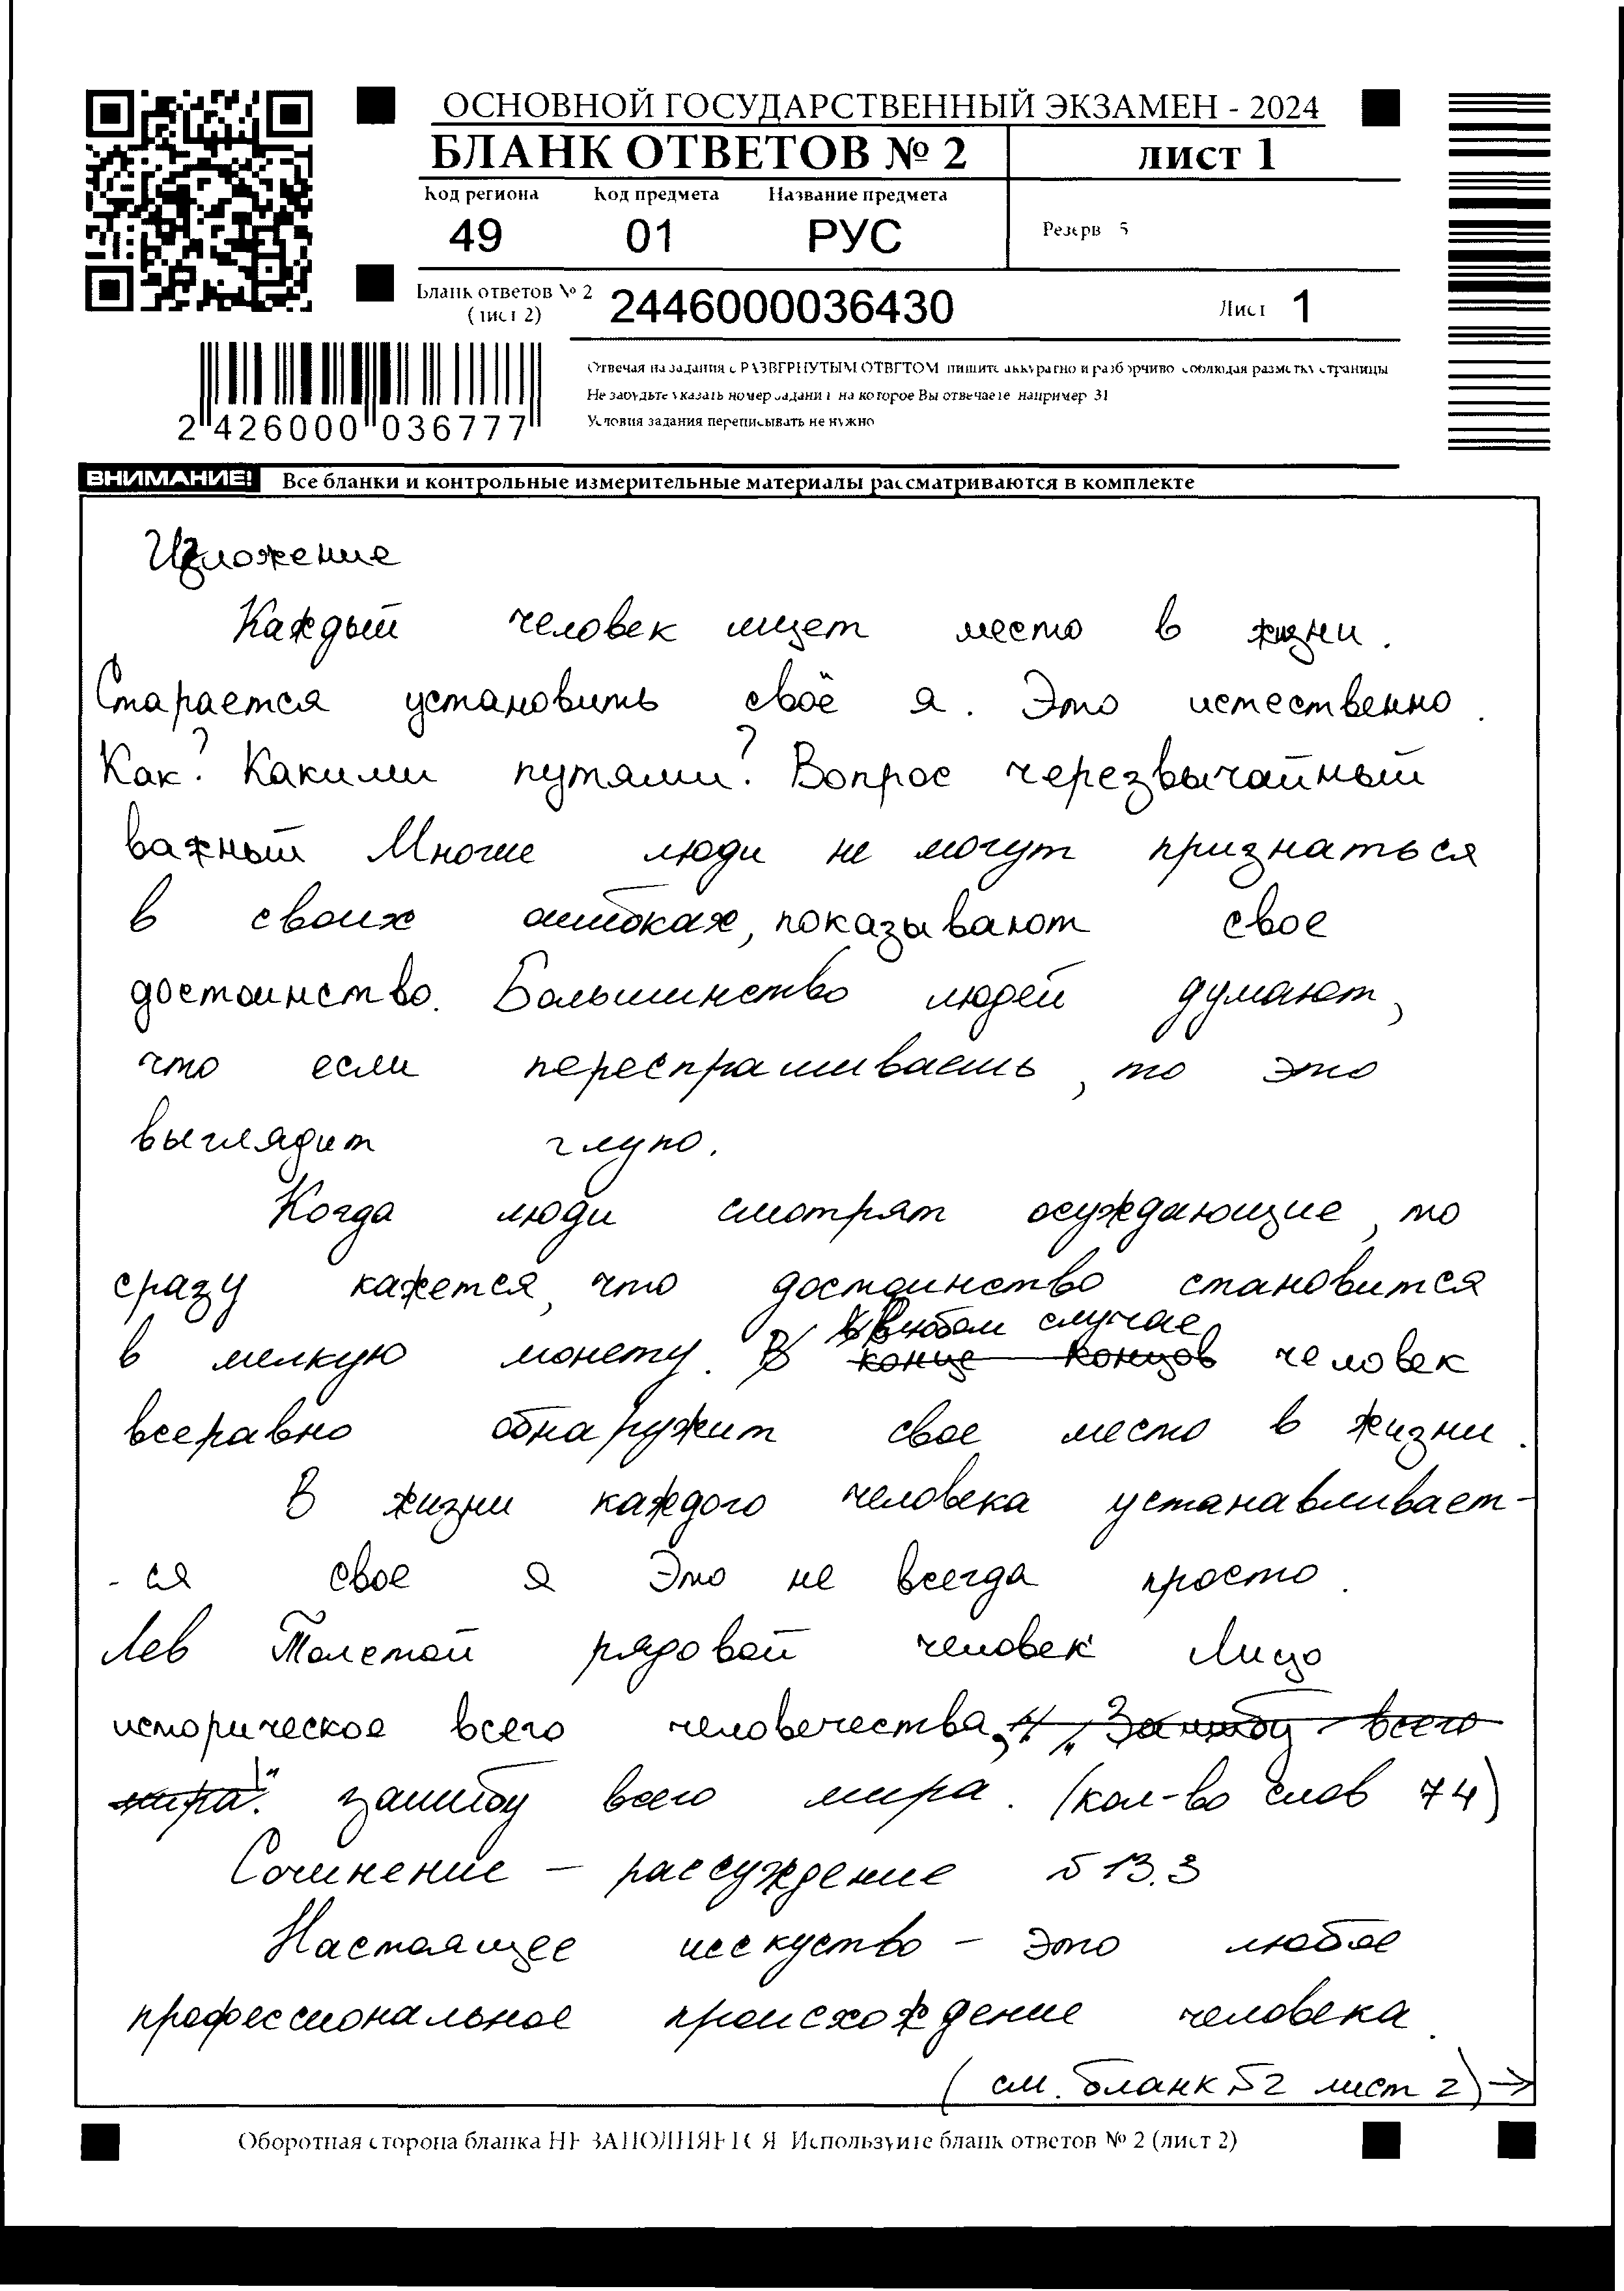 ОСНОВНОЙ ГОСУДАРСТВЕННЫЙ ЭКЗАМЕН - 2024
БЛАНК ОТВЕТОВ № 2
ЛИСТ 1
Код региона Код предмета Название предмета
49 01 РУС
Резерв 5
Бланк ответов № 2
(лист 2)
2446000036430
Лист 1
Отвечая на задания с РАЗВЕРНУТЫМ ОТВЕТОМ пишите аккуратно и разборчиво соблюдая разметку страницы
Не забудьте указать номер задания на которое Вы отвечаете например 31
Условия задания переписывать не нужно
2 426000 036777
ВНИМАНИЕ! Все бланки и контрольные измерительные материалы рассматриваются в комплекте
Изложение
Каждый человек ищет место в жизни.
Старается установить своё я. Это истественно.
Как? Какими путями? Вопрос черезвычайный
важный Многие люди не могут признаться
в своих ошибках, показывают свое
достоинство. Большинство людей думают,
что если переспрашиваешь, то это
выглядит глупо.
Когда люди смотрят осуждающие, то
сразу кажется, что достоинство становится
в любом случае,
в мелкую монету. В конце концов человек
всеравно обнаружит свое место в жизни.
В жизни каждого человека устанавливает-
-ся свое я Это не всегда просто.
Лев Толстой рядовой человек Лицо
историческое всего человечества,
мира". зашибу всего мира. (кол-во слов 74)
Сочинение – рассуждение № 13.3
Настоящее исскуство – это любое
профессиональное происхождение человека.
(см. бланк №2 лист 2) →
Оборотная сторона бланка НЕ ЗАПОЛНЯЕТСЯ Используйте бланк ответов № 2 (лист 2)